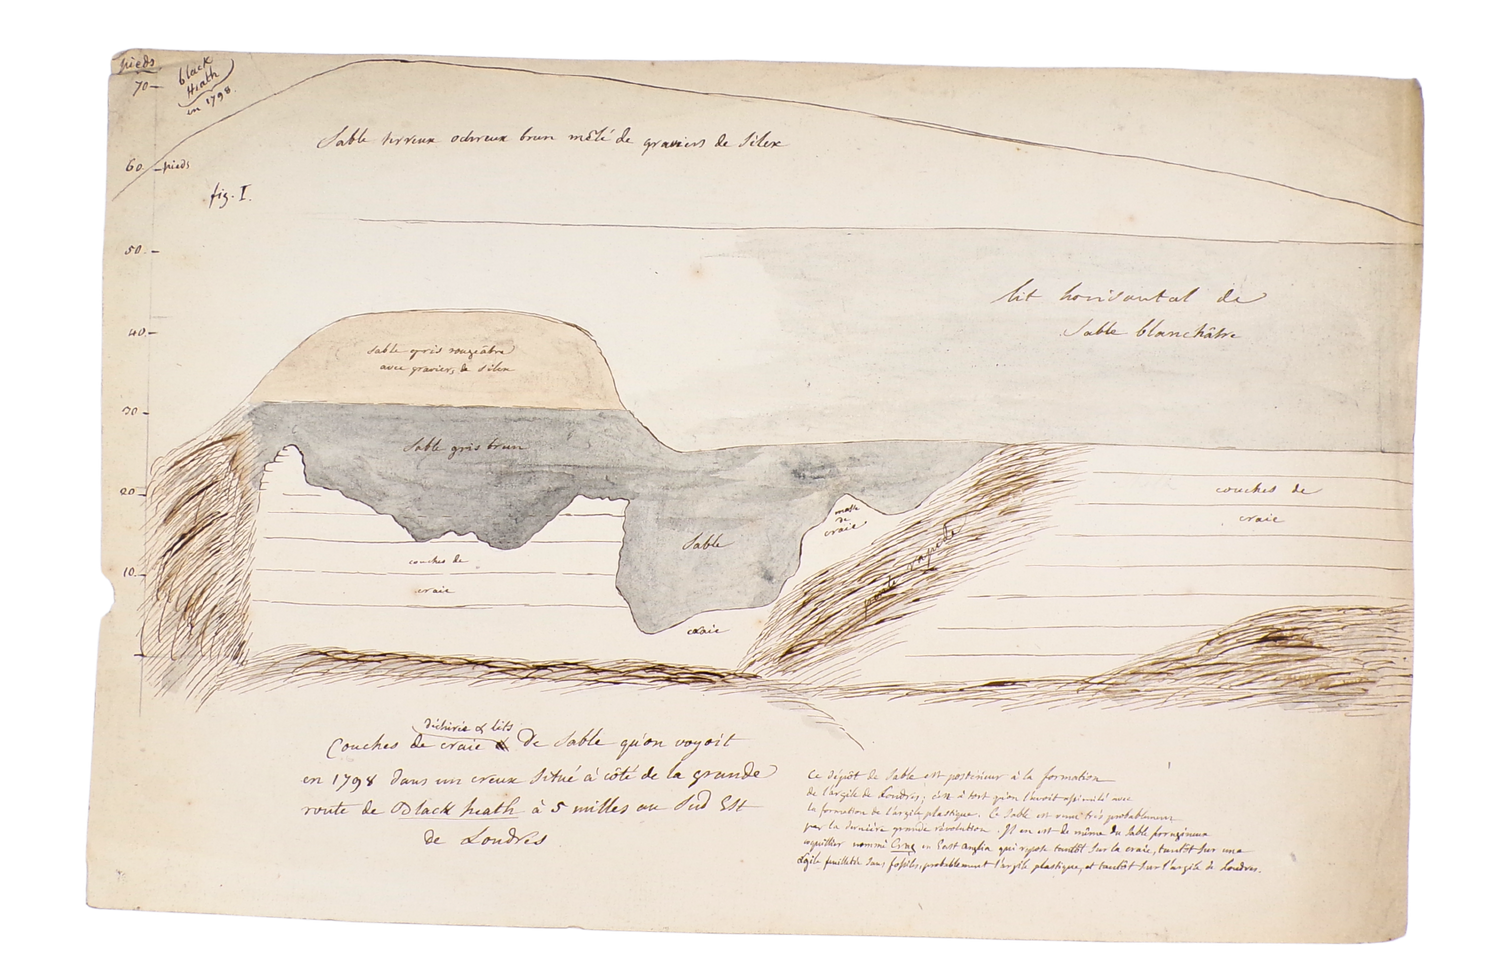 pieds
70
black
Heath
en 1798.
Sable terreux ochreux brun mêlé de graviers de Silex
60 pieds
fig. I.
50
lit horisontal de
Sable blanchâtre
40
Sable gris rougeâtre
avec graviers de Silex
30
Sable gris brun
20
couches de
craie
masse
de
craie
Sable
couches de
craie
10
craie
dichirés & lits
Couches de craie & de Sable qu'on voyoit
en 1798 dans un creux Situé à côté de la grande
route de Black heath à 5 milles au Sud Est
de Londres
Ce dépôt de Sable est postérieur à la formation
de l'argile de Londres; c'est à tort qu'on l'avoit assimilé avec
la formation de l'argile plastique. Ce Sable est venu très probablement
par la dernière grande révolution. Il en est de même du Sable ferugineux
coquillier nommé Crag en East Anglia qui repose tantôt Sur la craie, tantôt Sur une
Argile feuilletée Sans fossiles, probablement l'argile plastique, et tantôt Sur l'argile de Londres.